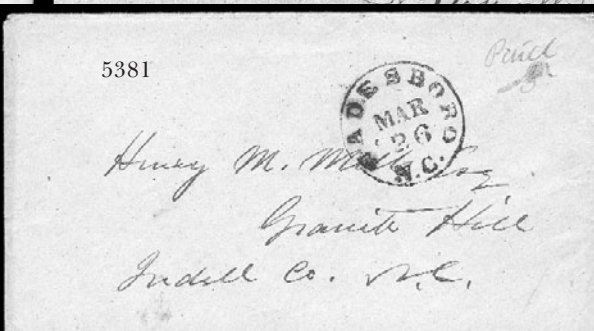 5381
WADESBORO
MAR
26
N.C.
Henry M. Esq
Granite Hill
Iredell Co. N.C.